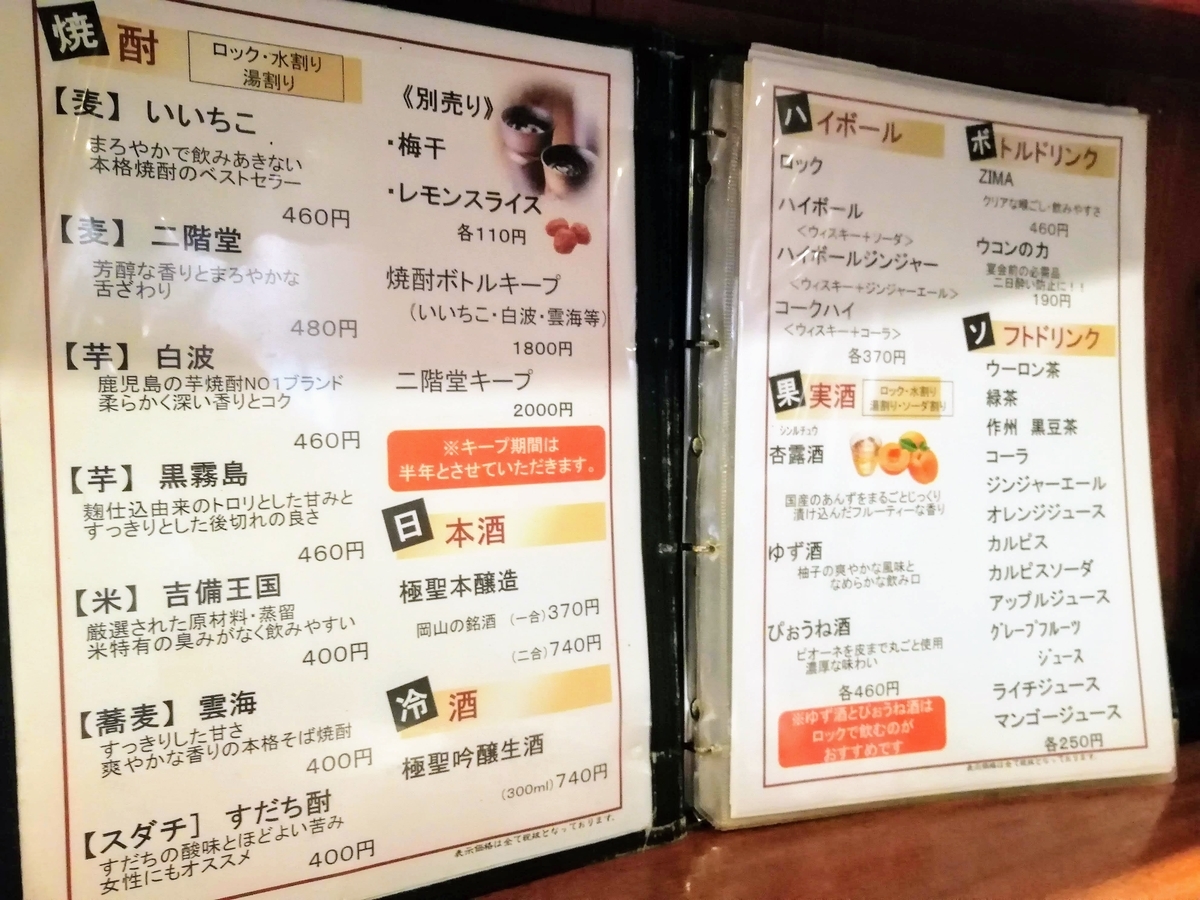 焼酎
ロック・水割り
湯割り
【麦】 いいちこ
まろやかで飲みあきない
本格焼酎のベストセラー
460円
【麦】 二階堂
芳醇な香りとまろやかな
舌ざわり
480円
【芋】 白波
鹿児島の芋焼酎NO1ブランド
柔らかく深い香りとコク
460円
【芋】 黒霧島
麹仕込由来のトロリとした甘みと
すっきりとした後切れの良さ
460円
【米】 吉備王国
厳選された原材料・蒸留
米特有の臭みがなく飲みやすい
400円
【蕎麦】 雲海
すっきりした甘さ
爽やかな香りの本格そば焼酎
400円
【スダチ］ すだち酎
すだちの酸味とほどよい苦み
女性にもオススメ
400円
《別売り》
・梅干
・レモンスライス
各110円
焼酎ボトルキープ
（いいちこ・白波・雲海等）
1800円
二階堂キープ
2000円
※キープ期間は
半年とさせていただきます。
日本酒
極聖本醸造
岡山の銘酒 （一合）370円
（二合）740円
冷酒
極聖吟醸生酒
（300ml）740円
表示価格は全て税抜となっております。
ハイボール
ロック
ハイボール
＜ウィスキー＋ソーダ＞
ハイボールジンジャー
＜ウィスキー＋ジンジャーエール＞
コークハイ
＜ウィスキー＋コーラ＞
各370円
果実酒
ロック・水割り
湯割り・ソーダ割り
シンルチュウ
杏露酒
国産のあんずをまるごとじっくり
漬け込んだフルーティーな香り
ゆず酒
柚子の爽やかな風味と
なめらかな飲み口
ぴぉうね酒
ピオーネを皮まで丸ごと使用
濃厚な味わい
各460円
※ゆず酒とぴぉうね酒は
ロックで飲むのが
おすすめです
ボトルドリンク
ZIMA
クリアな喉ごし・飲みやすさ
460円
ウコンの力
宴会前の必需品
二日酔い防止に！！
190円
ソフトドリンク
ウーロン茶
緑茶
作州 黒豆茶
コーラ
ジンジャーエール
オレンジジュース
カルピス
カルピスソーダ
アップルジュース
グレープフルーツ
ジュース
ライチジュース
マンゴージュース
各250円
表示価格は全て税抜となっております。